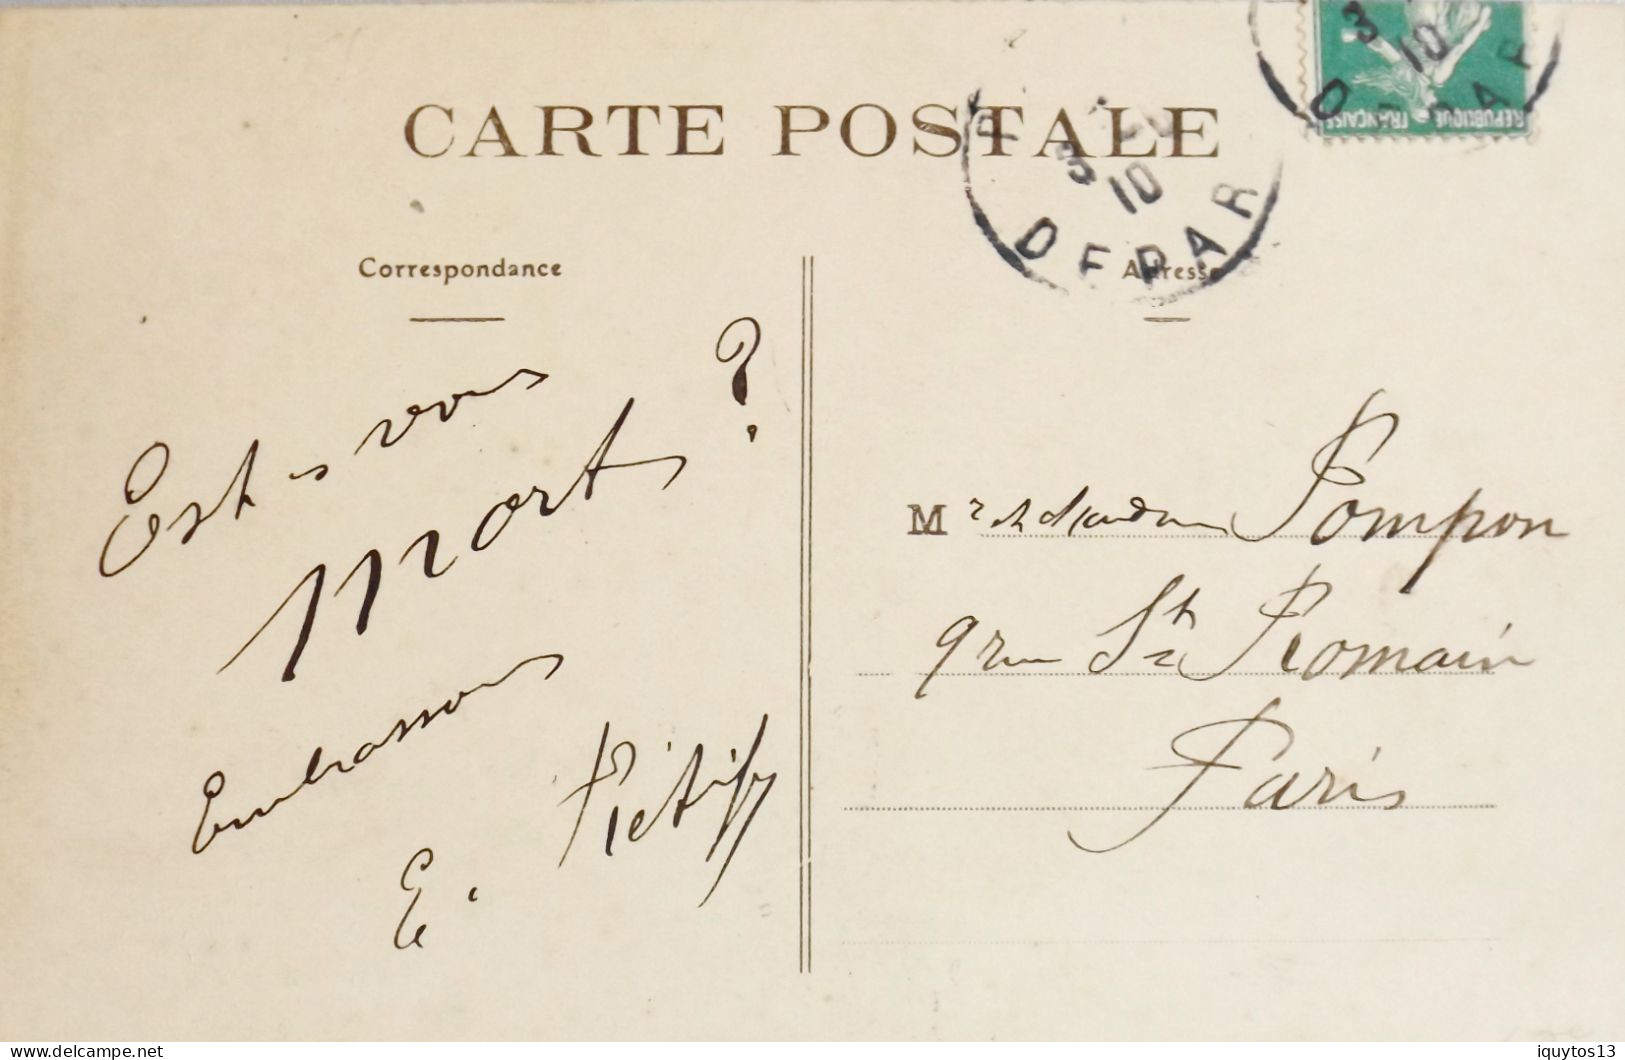 CARTE POSTALE
Correspondance
Est-ce vous
mort ?
Embrassons
E.
Adresse
Mr et Madame Pompon
9 rue St Romain
Paris
3
10
DEPAR
3
10
REPUBLIQUE FRANÇAISE
delcampe.net
iquytos13